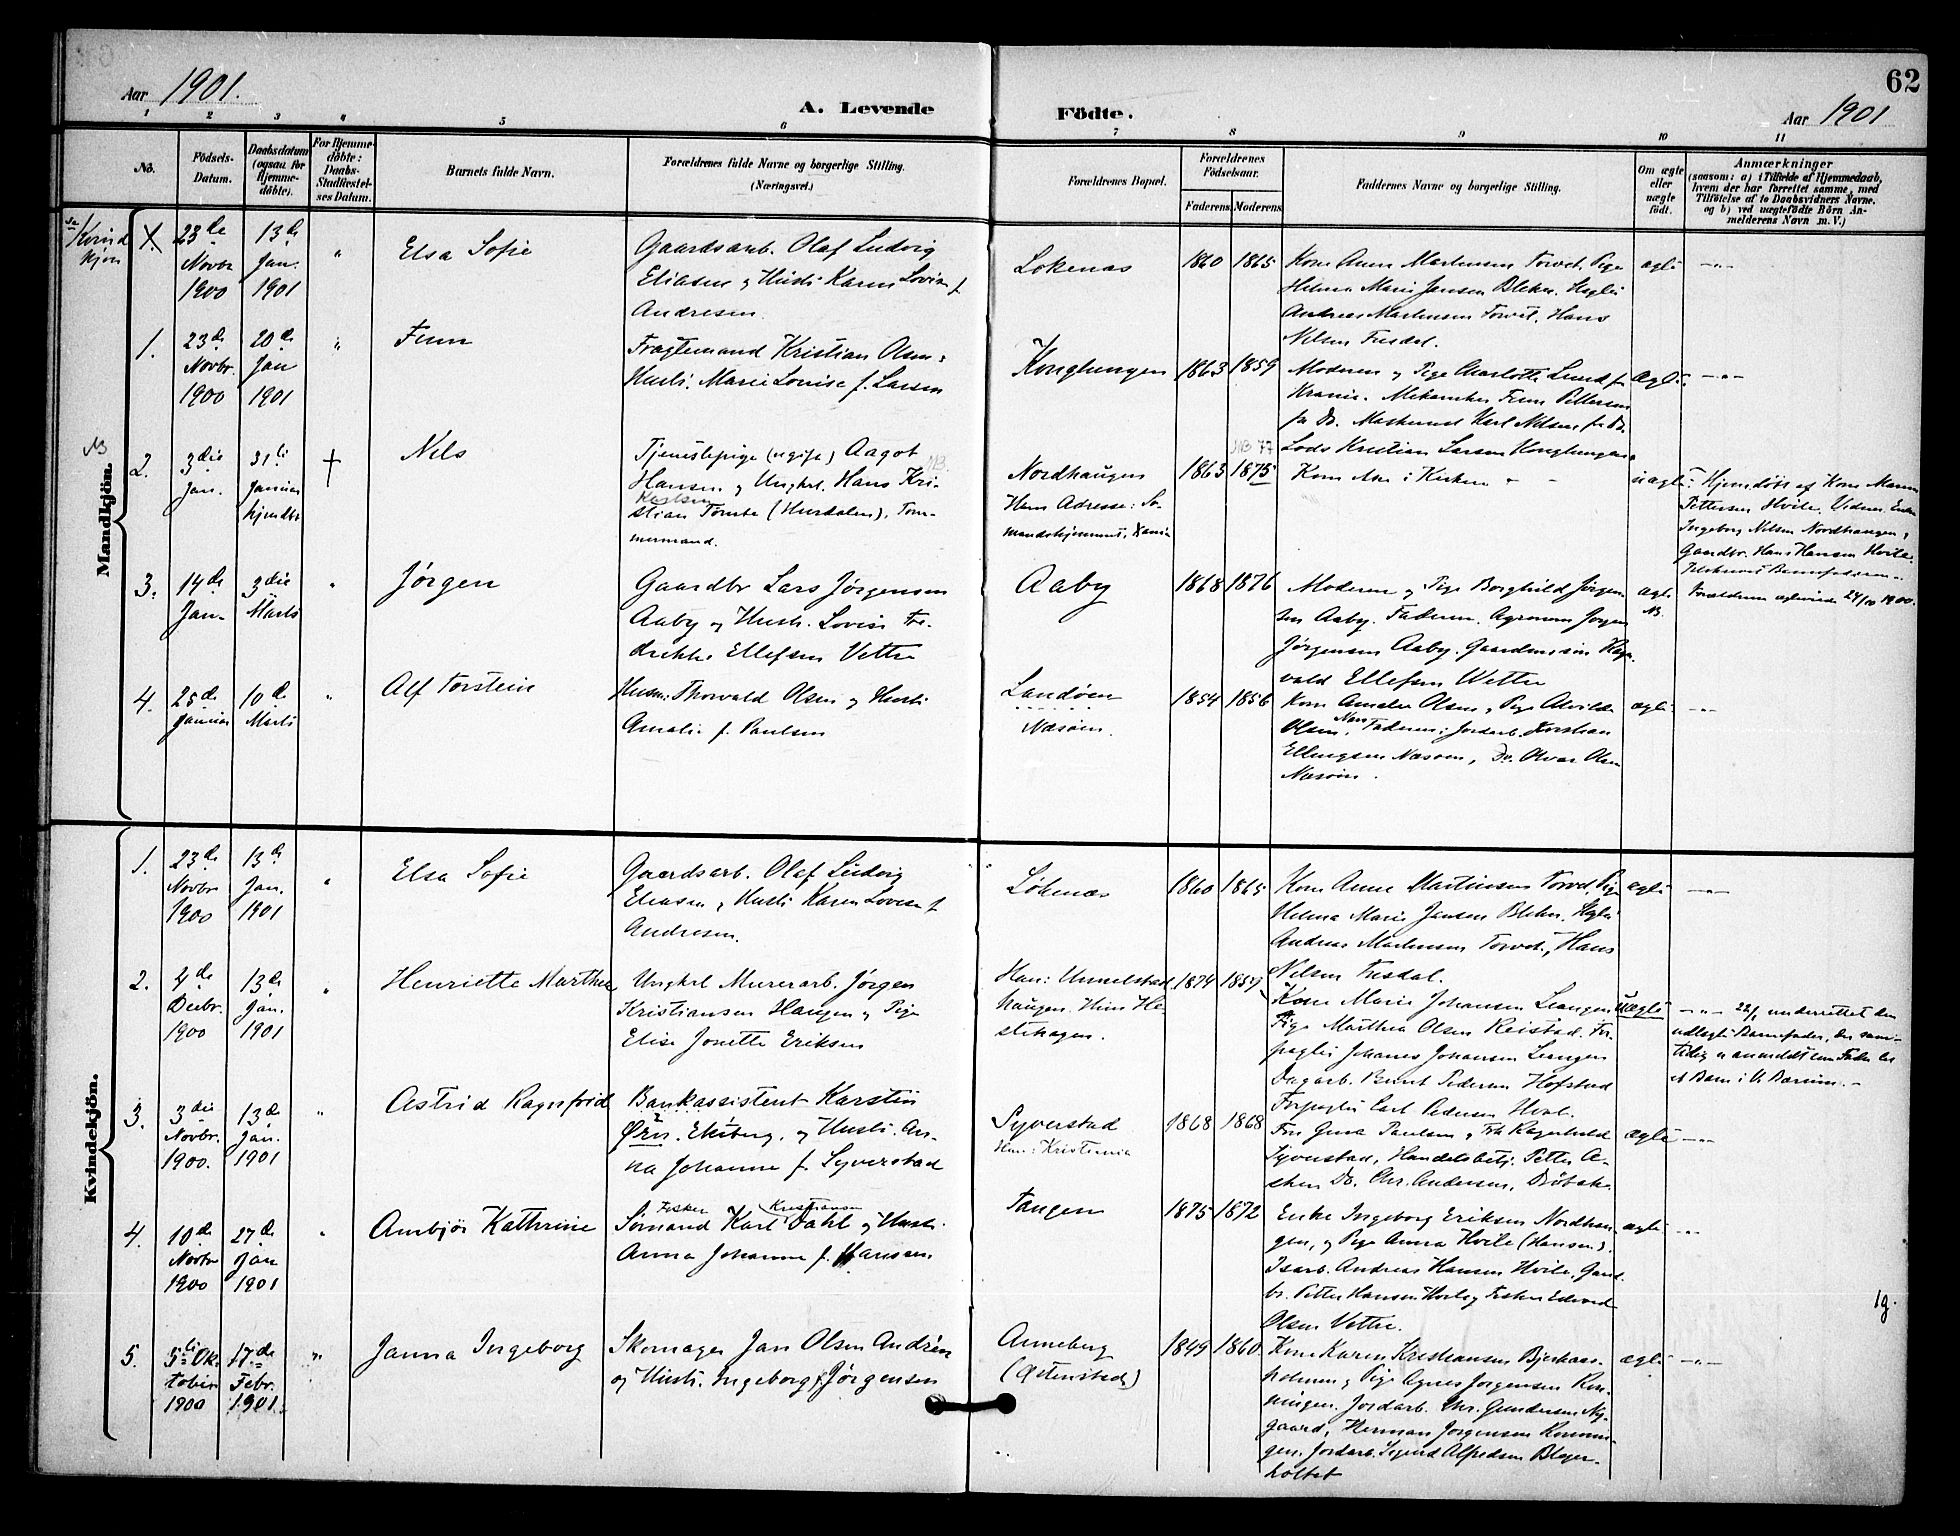 62
Aar 1901.
A. Levende
Födte.
Aar 1901
1 2 3 4 5 6 7 8 9 10 11
No.
Födsels-
Datum.
Daabsdatum
(ogsaa for
Hjemme-
döbte).
For Hjemme-
döbte:
Daabs-
Stadfæstel-
ses Datum.
Barnets fulde Navn.
Forældrenes fulde Navne og borgerlige Stilling.
(Næringsvei.)
Forældrenes Bopæl.
Forældrenes
Födselsaar.
Faderens. Moderens.
Faddernes Navne og borgerlige Stilling.
Om ægte
eller
uægte
födt.
Anmærkninger
(saasom: a) i Tilfælde af Hjemmedaab,
hvem der har forrettet samme, med
Tilföielse af to Daabsvidners Navne.
og b) ved uægtefödte Börn An-
melderens Navn m. V.)
Mandkjön.
Se Kvind
kjøn
X.
23de
Novbr
1900
13de
Jan.
1901
"
Elsa Sofie
Gaardsarb. Olaf Ludvig
Eliasen og Hustr. Karen Lovise f.
Andresen.
Løkenæs
1860
1865
Kone Anne Martinsen Torvet, Pige
Helma Marie Jansen Bleker.
Andreas Martinsen Torvet, Hans
Nilsen Tresdal.
ægte
-"-
1.
23de
Novbr.
1900
20de
Jan
1901
"
Finn
Fragtemand Kristian Olsen &
Hustr. Marie Louise f. Larsen
Konglungen
1863
1859
Moderen og Pige Charlotte Lund fra
Krania. Mekaniker Finn Pettersen
fra Do. Maskinist Karl Nilsen fr. Do.
Lods Kristian Larsen Konglungen
ægte.
-"-
2.
3die
Jan.
31te
Januar
hjemdbt
†
Nels
Tjenestepige (ugift) Aagot
Hansen og Ungkrl. Hans Kri-
Karlsen
stian Tømte (Hurdalen), Tøm-
mermand.
Nordhaugen
Hans Adresse: Sø-
mandshjemmet, Xania
1863
1875
Kone i Kirken
uægte
Hjemdøbt af Kone Maren
Pettersen Hvile. Vidner: Enke
Ingeborg Nilsen Nordhaugen,
Gaardbr. Hans Hansen Hvile.
3.
14de
Jan.
3die
Marts
"
Jørgen
Gaardbr Lars Jørgensen
Aaby og Hustr. Lovise Fre-
drikke Ellefsen Vettre
Aaby
1868
1876
Moderen og Pige Borghild Jørgen-
sen Aaby. Faderen, Agronom Jørgen
Jørgensen Aaby. Gaardmandssøn Ragn-
vald Ellefsen Wettre
ægte
NB.
Forældrene ægteviede 24/10 1900.
4.
25de
Januar
10de
Marts
"
Alf Torstein
Husm: Thorvald Olsen og Hustr.
Amalie f. Paulsen
Landøen
Næsøen.
1854
1856
Kone Amalie Olsen, Pige Alvilde
Olsen, Næs. Faderen, Jordarb. Kristian
Ellingsen Næsøen, Do. Olvar Olsen
Næsøen.
ægte
-"-
Kvindekjön.
1.
23de
Novbr
1900
13de
Jan.
1901
"
Elsa Sofie
Gaardsarb. Olaf Ludvig
Eliasen og Hustr. Karen Lovise f.
Andresen.
Løkenæs
1860
1865
Kone Anne Martinsen Torvet, Pige
Helma Marie Jansen Bleker.
Andreas Martinsen Torvet, Hans
Nilsen Tresdal.
ægte
-"-
2.
4de
Decbr.
1900
13de
Jan.
1901
"
Henriette Marthea
Ungkrl Murerarb. Jørgen
Kristiansen Haugen og Pige
Elise Jonette Eriksen
Han: Unnelstad
haugen. Hun He-
stehagen.
1874
1857
Kone Marie Johansen Leangen
Pige Marthea Olsen Reistad. For-
pagter Johanes Johansen Leangen
Dagarb. Bernt Pedersen Hofstad
Forpagter Carl Pedersen Hval.
uægte
-"- 22/1 underrettet den
udlagte Barnefader, der sam-
tidig er anmeldt som Fader til
et Barn i V. Bærum.-
3.
3die
Novbr.
1900.
13de
Jan.
1901
"
Astrid Ragnfrid
Bankassistent Karstin
Ørn. Ekeberg, og Hustr. An-
na Johanne f. Syverstad
Syverstad
Han: Kristiania
1868
1868
Fru Gina Paulsen og Frk Ragnhild
Syverstad, Handelsbetj. Petter A-
sken Do. Chr. Andersen, Drøbak.
ægte
-"-
4.
10de
Novbr
1900
27de
Jan
1901
"
Ambjør Kathrine
Fisker Kristiansen
Sømand Karl Dahl og Hustr.
Anna Johanne f. Hansen.
Tangen
1875
1872
Enke Ingeborg Eriksen Nordhau-
gen, og Pige Anna Hvile (Hansen).
Isarb. Andreas Hansen Hvile, Gaard-
br. Petter Hansen Hvile og Fisker Edvard
Olsen Vettre.
ægte
-"-
1g.
5.
5te Ok-
tober
1900
17de
Febr.
1901.
"
Janna Ingeborg
Skomager Jan Olsen Andrén
og Hustr. Ingeborg f. Jørgensen
Anneberg
(Østenstad)
1849
1860
Kone Karen Kristiansen Bjerkaas-
holmen og Pige Agnes Jørgensen Røn-
ningen. Jordarb. Chr. Gundersen Ny-
gaard, Herman Jørgensen Rønnin-
gen, Jordarb. Sigurd Alfredsen Bleger-
holtet
ægte
-"-